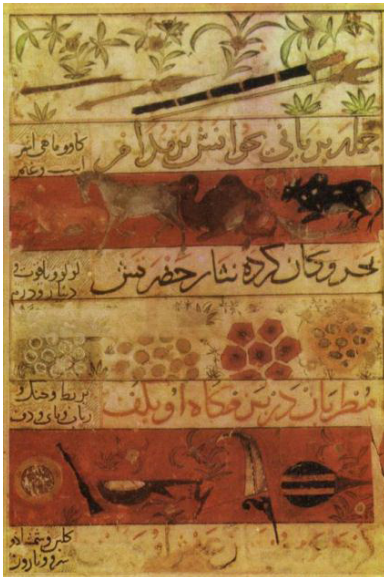 جمله بریانی بخوانش بر مدام
كاو و ماهی اشتر
اسب و غنم
بحر و كان كرده نثار حضرتش
لولو و یاقوت و
دینار و درم
مطربان در بزمگاه او بكف
بربط و چنك و
رباب و نای و دف
كلبن و شمشاد و
سرو و نارون